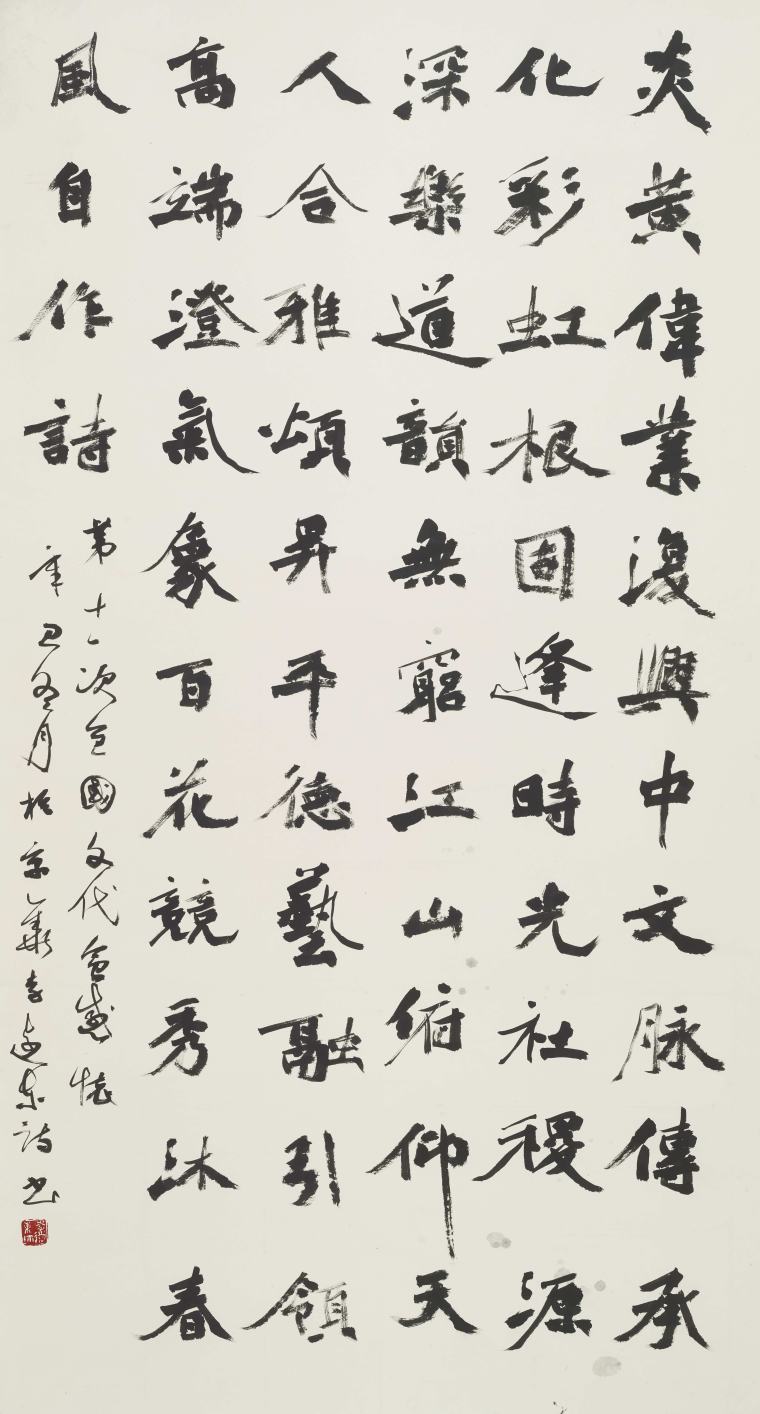 炎黃偉業復興中文脉傳承
化彩虹根固逢時光社稷源
深樂道韻無窮江山俯仰天
人合雅頌昇平德藝融引領
高端澄氣象百花競秀沐春
風自作詩
第十一次全國文代會感懷
辛丑冬月於京華李遠東詩書